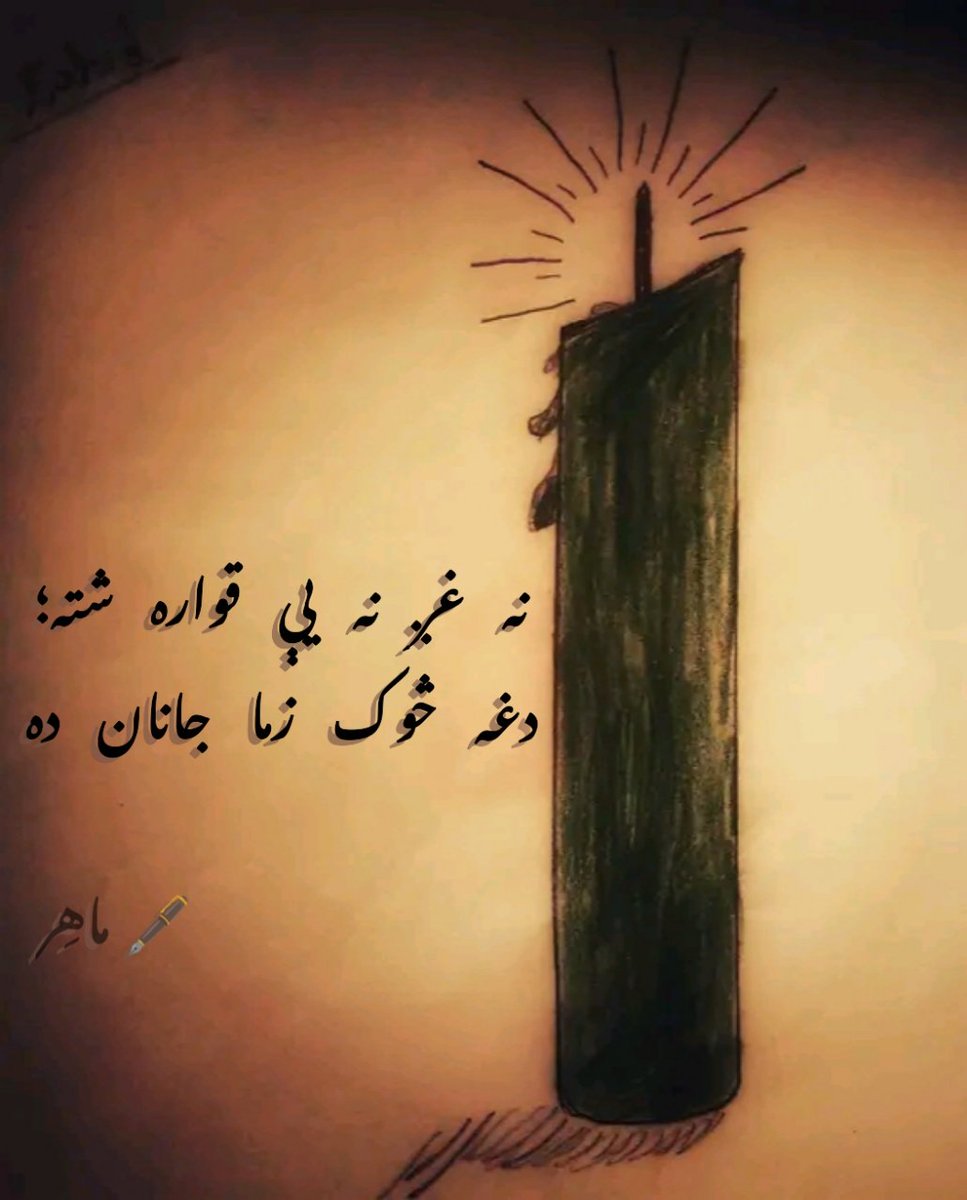 نه غږ نه يې قواره شته؛
دغه څوک زما جانان ده
ماهِر